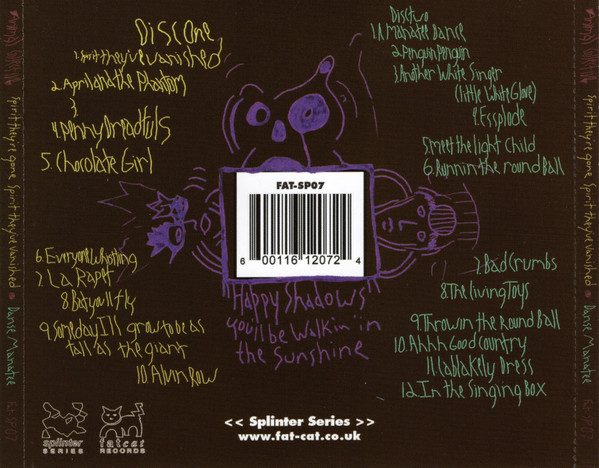 Disc One
1. Spirit they've vanished
2. April and the Phantom
3
4. Penny Dreadfuls
5. Chocolate Girl
6. Everyone Whistling
7. La Rapet
8 Bat you'll fly
9. Someday I'll grow to be as
tall as the giant
10. Alvin Row
Disc two
1. A Manatee Dance
2. Penguin Penguin
3. Another White Singer
(little White Glove)
4. Essplode
5 meet the light Child
6. Runnin the round Ball
7. Bad Crumbs
8. The living Toys
9. Throwin the Round Ball
10. Ahhh Good Country
11. Lablakely Dress
12. In the Singing Box
FAT-SP07
6 00116 12072 4
"Happy Shadows"
you'll be Walkin' in
the Sunshine
<< Splinter Series >>
www.fat-cat.co.uk
splinter
SERIES
fatcat
RECORDS
Spirit they're gone Spirit they've vanished
Danse Manatee
FAT-SP07
Spirit they're gone Spirit they've vanished
Danse Manatee
FAT-SP07